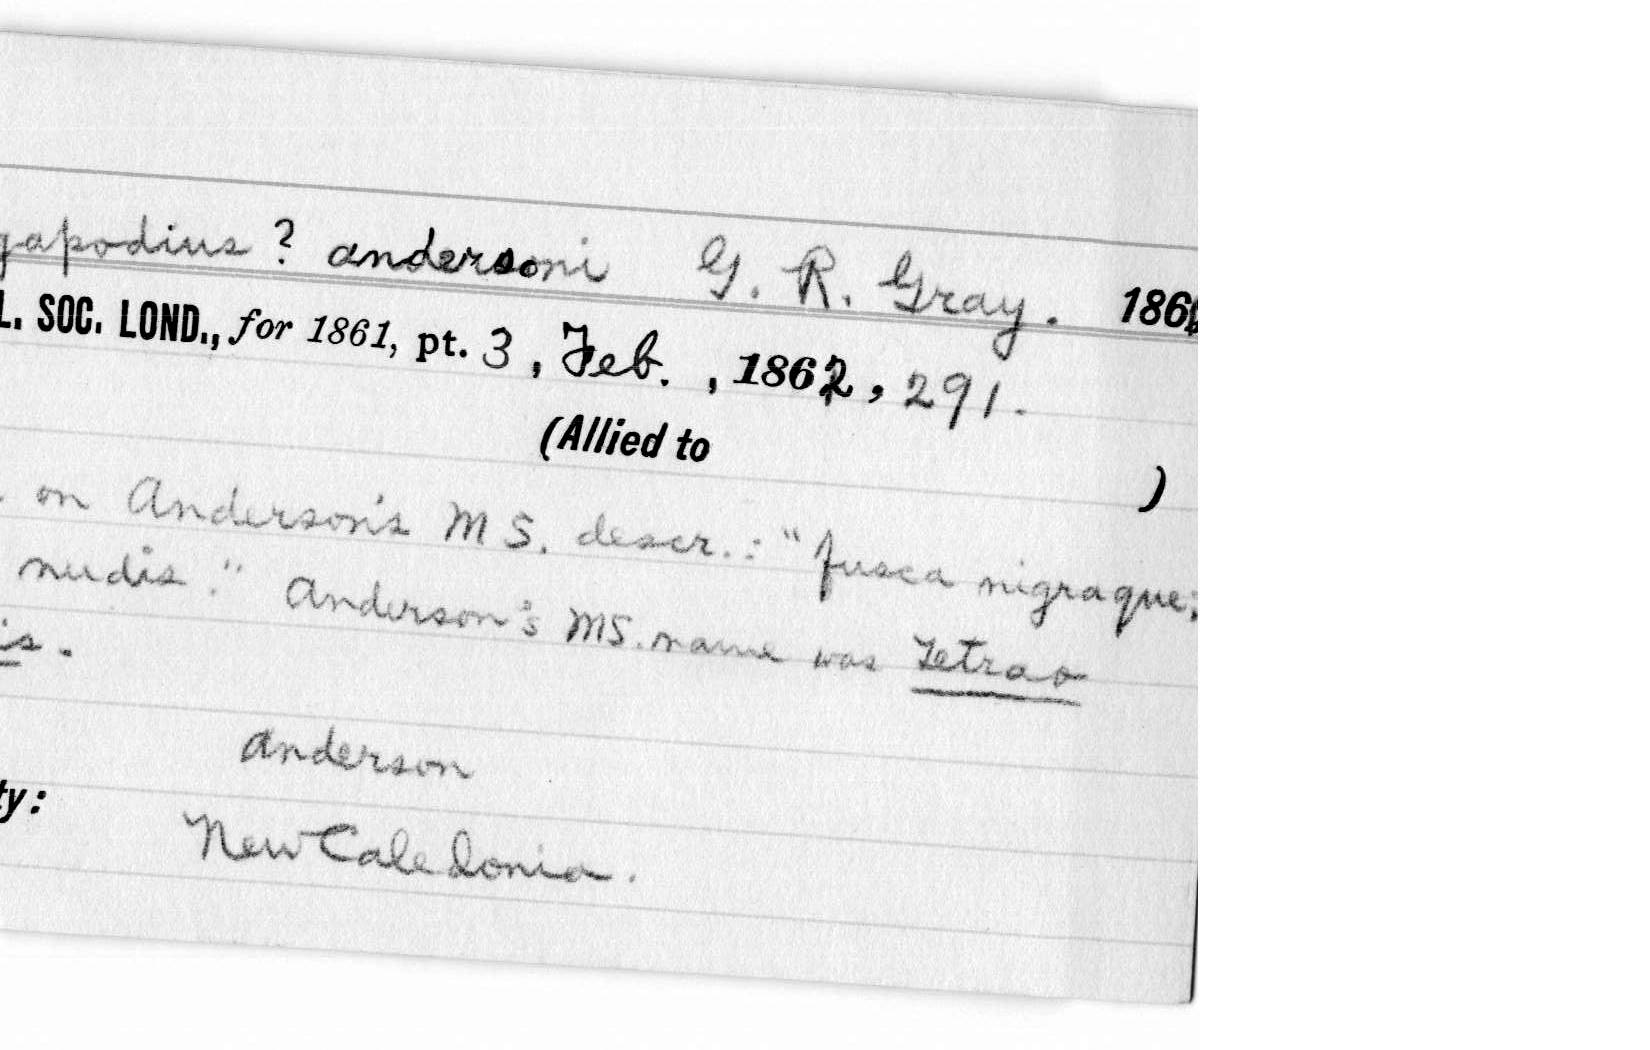 gapodius ? andersoni G. R. Gray. 186
L. SOC. LOND., for 1861, pt. 3, Feb. , 1862, 291.
(Allied to )
on Anderson's MS. descr.: "fusca nigraque;
nudis." Anderson's MS. name was Tetrao
is.
Anderson
ty:
New Caledonia.